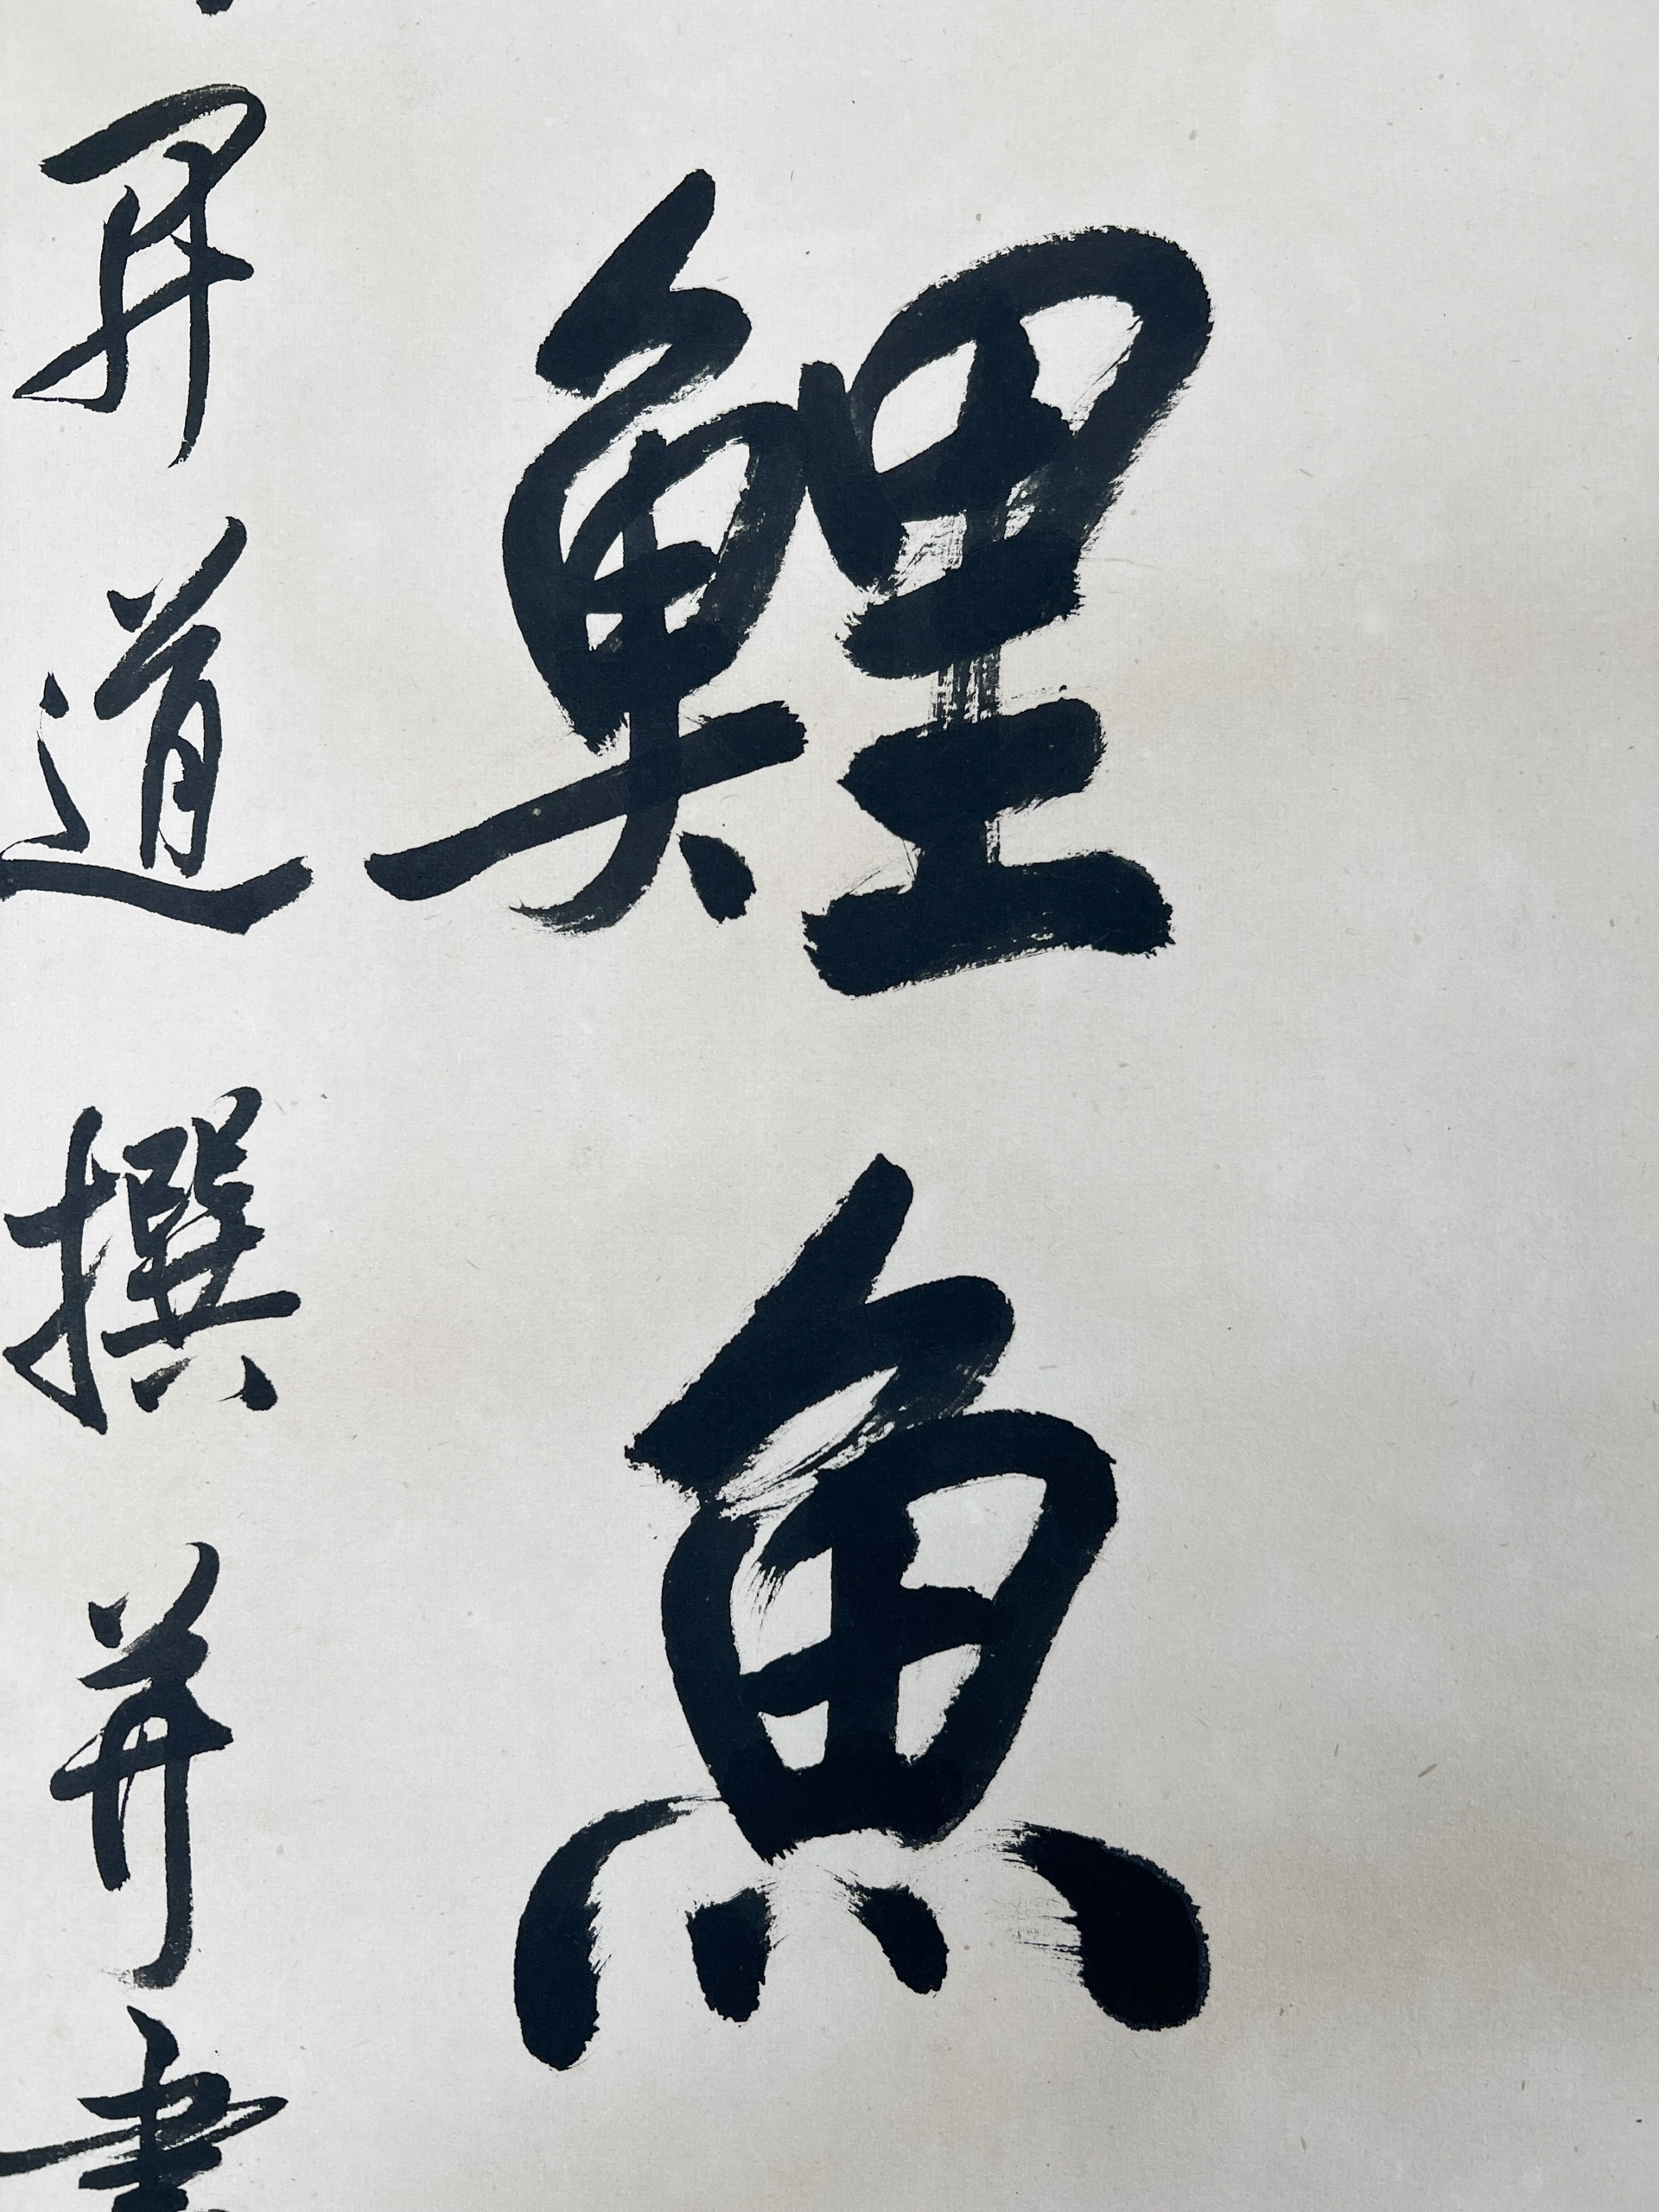 鯉魚
道撰并書